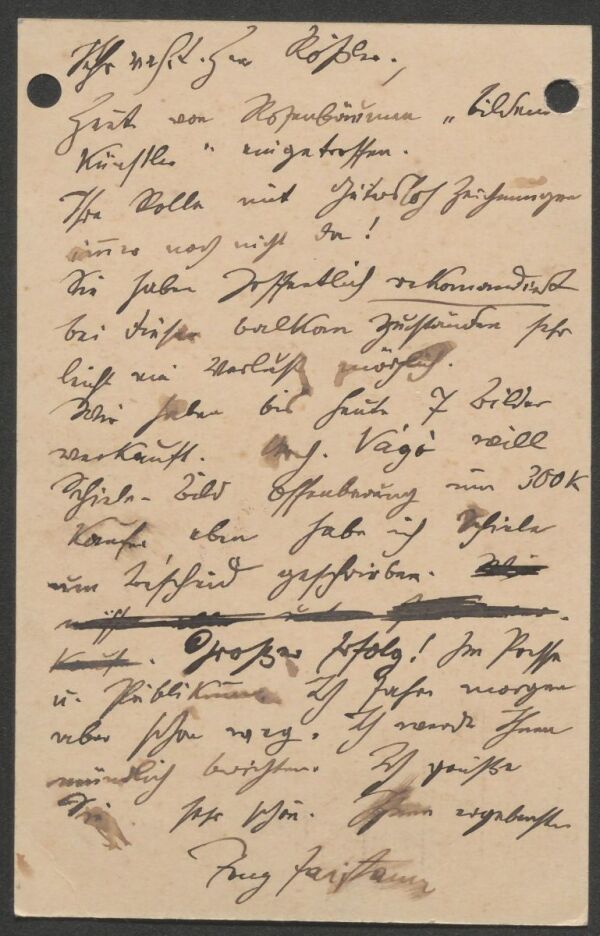 Sehr verehrt. Herr Rößler.,
Heute von Rosenbaum "bildende
Künstler" eingetroffen.
Ihre Rolle mit Gütersloh Zeichnungen
immer noch nicht da!
Sie haben hoffentlich rekomandirt
bei diesen balkan Zuständen sehr
leicht ein Verlust möglich.
Wir haben bis heute 7 Bilder
verkauft. Arch. Vágó will
Schiele-Bild Offenbarung um 300 K
kaufen eben habe ich Schiele
um Bescheid geschrieben.
Großer Erfolg! In Presse
u. Publikum. Ich fahre morgen
aber schon weg. Ich werde Ihnen
mündlich berichten. Ich grüße
Sie sehr schön. Ihnen ergebenster